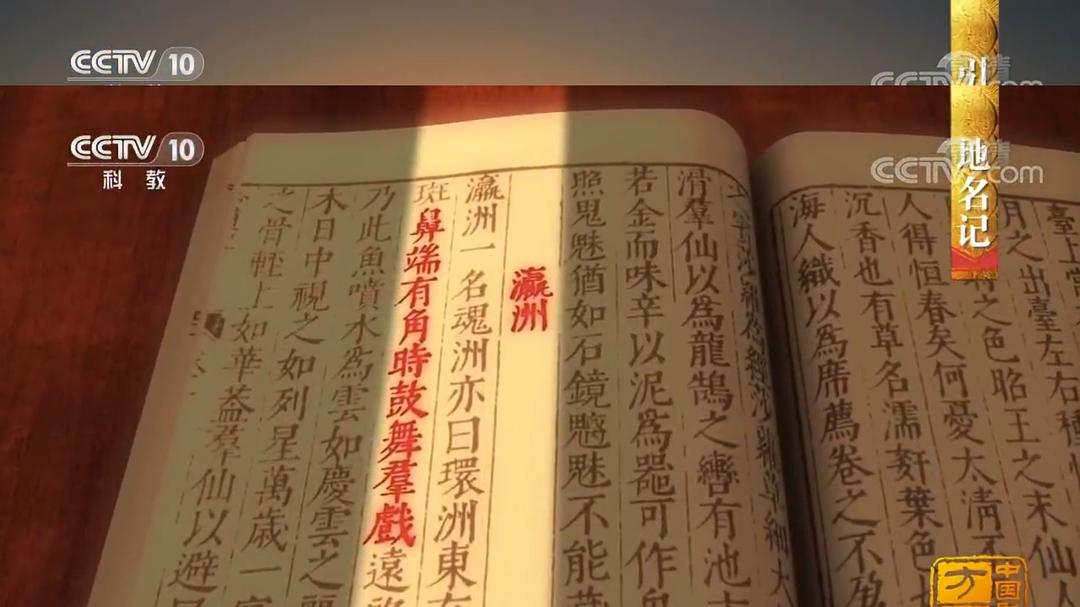 CCTV 10
CCTV.com
引
CCTV 10
科教
CCTV.com
地名记
臺上
月之出臺左右種
之色昭王之末仙人
人得恒春矣何憂太清不
沉香也有草名濡葉色
海人織以為席薦卷之不
滑羣仙以為龍鵠之轡有池
若金而味辛以泥為器可作
照鬼魅猶如石鏡魑魅不能
瀛洲
瀛洲一名魂洲亦曰環洲東
斑鼻端有角時鼓舞羣戲遠
乃此魚噴水為雲如慶雲之
木日中視之如列星萬歲一
之骨輕上如華蓋羣仙以避
中国